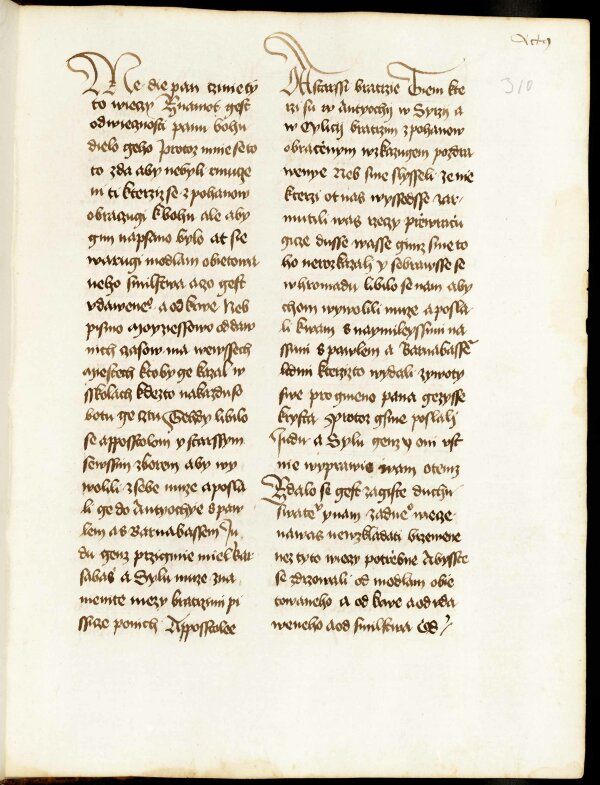 Actq
310
Me die pan czinie ty
to wieczy Znamot gest
odwiecznosti panu bohu
dielo geho protoz mnie se to
to zda aby nebyli tmuze
ni ti kterziz se z pohanow
obraczugi k bohu ale aby
gim napsano bylo at se
warugi modlam obietowa
neho smilstwa a zo gest
vdaweneº a od krwe Neb
pismo moyziessowo oddaw
nich czasow ma wewssech
miestech kto by ge kazal w
sskolach kdezto nakazdu so
botu ge cztu Tehdy libilo
se apposstolom y starssym
sewssim zborem aby wy
wolili z sebe muze a posla
li ge do Antyochye s paw
lem a s Barnabassem Ju
du genz przigmie miel bar
sabas a Sylu muze zna
menite mezy bratrzimi pi
ssize po nich Apposstolee
A starssi bratrzie Tiem kte
rzi su w Antyochy w Syrzi a
w Cylicy bratrzim z pohanow
obracenym wzkazugem pozdra
wenye Neb sme slysseli ze nie
kterzi ot nas wyssedsse zar
mutili was rzeczy przewraczu
gicze dusse wasse gimz sme to
ho nerozkazali y sebrawsse se
w hromadu libilo se nam aby
chom wywolili muze a posla
li k wam s naymileyssimi na
ssimi s pawlem a Barnabassē
lidmi kterzizto wydali zywoty
swe pro gmeno pana gezisse
krysta Protoz gsme poslali
Judu a Sylu genz y oni vst
nie wyprawie wam o temz
Zdalo se gest zagiste duchu
swateº y nam zadneº wiecze
na was newzkladati brzemene
nez tyto wieczy potrzebne Abysste
se zdrzowali od modlam obie
towaneho a od krwe a od vda
weneho a od smilstwa Od